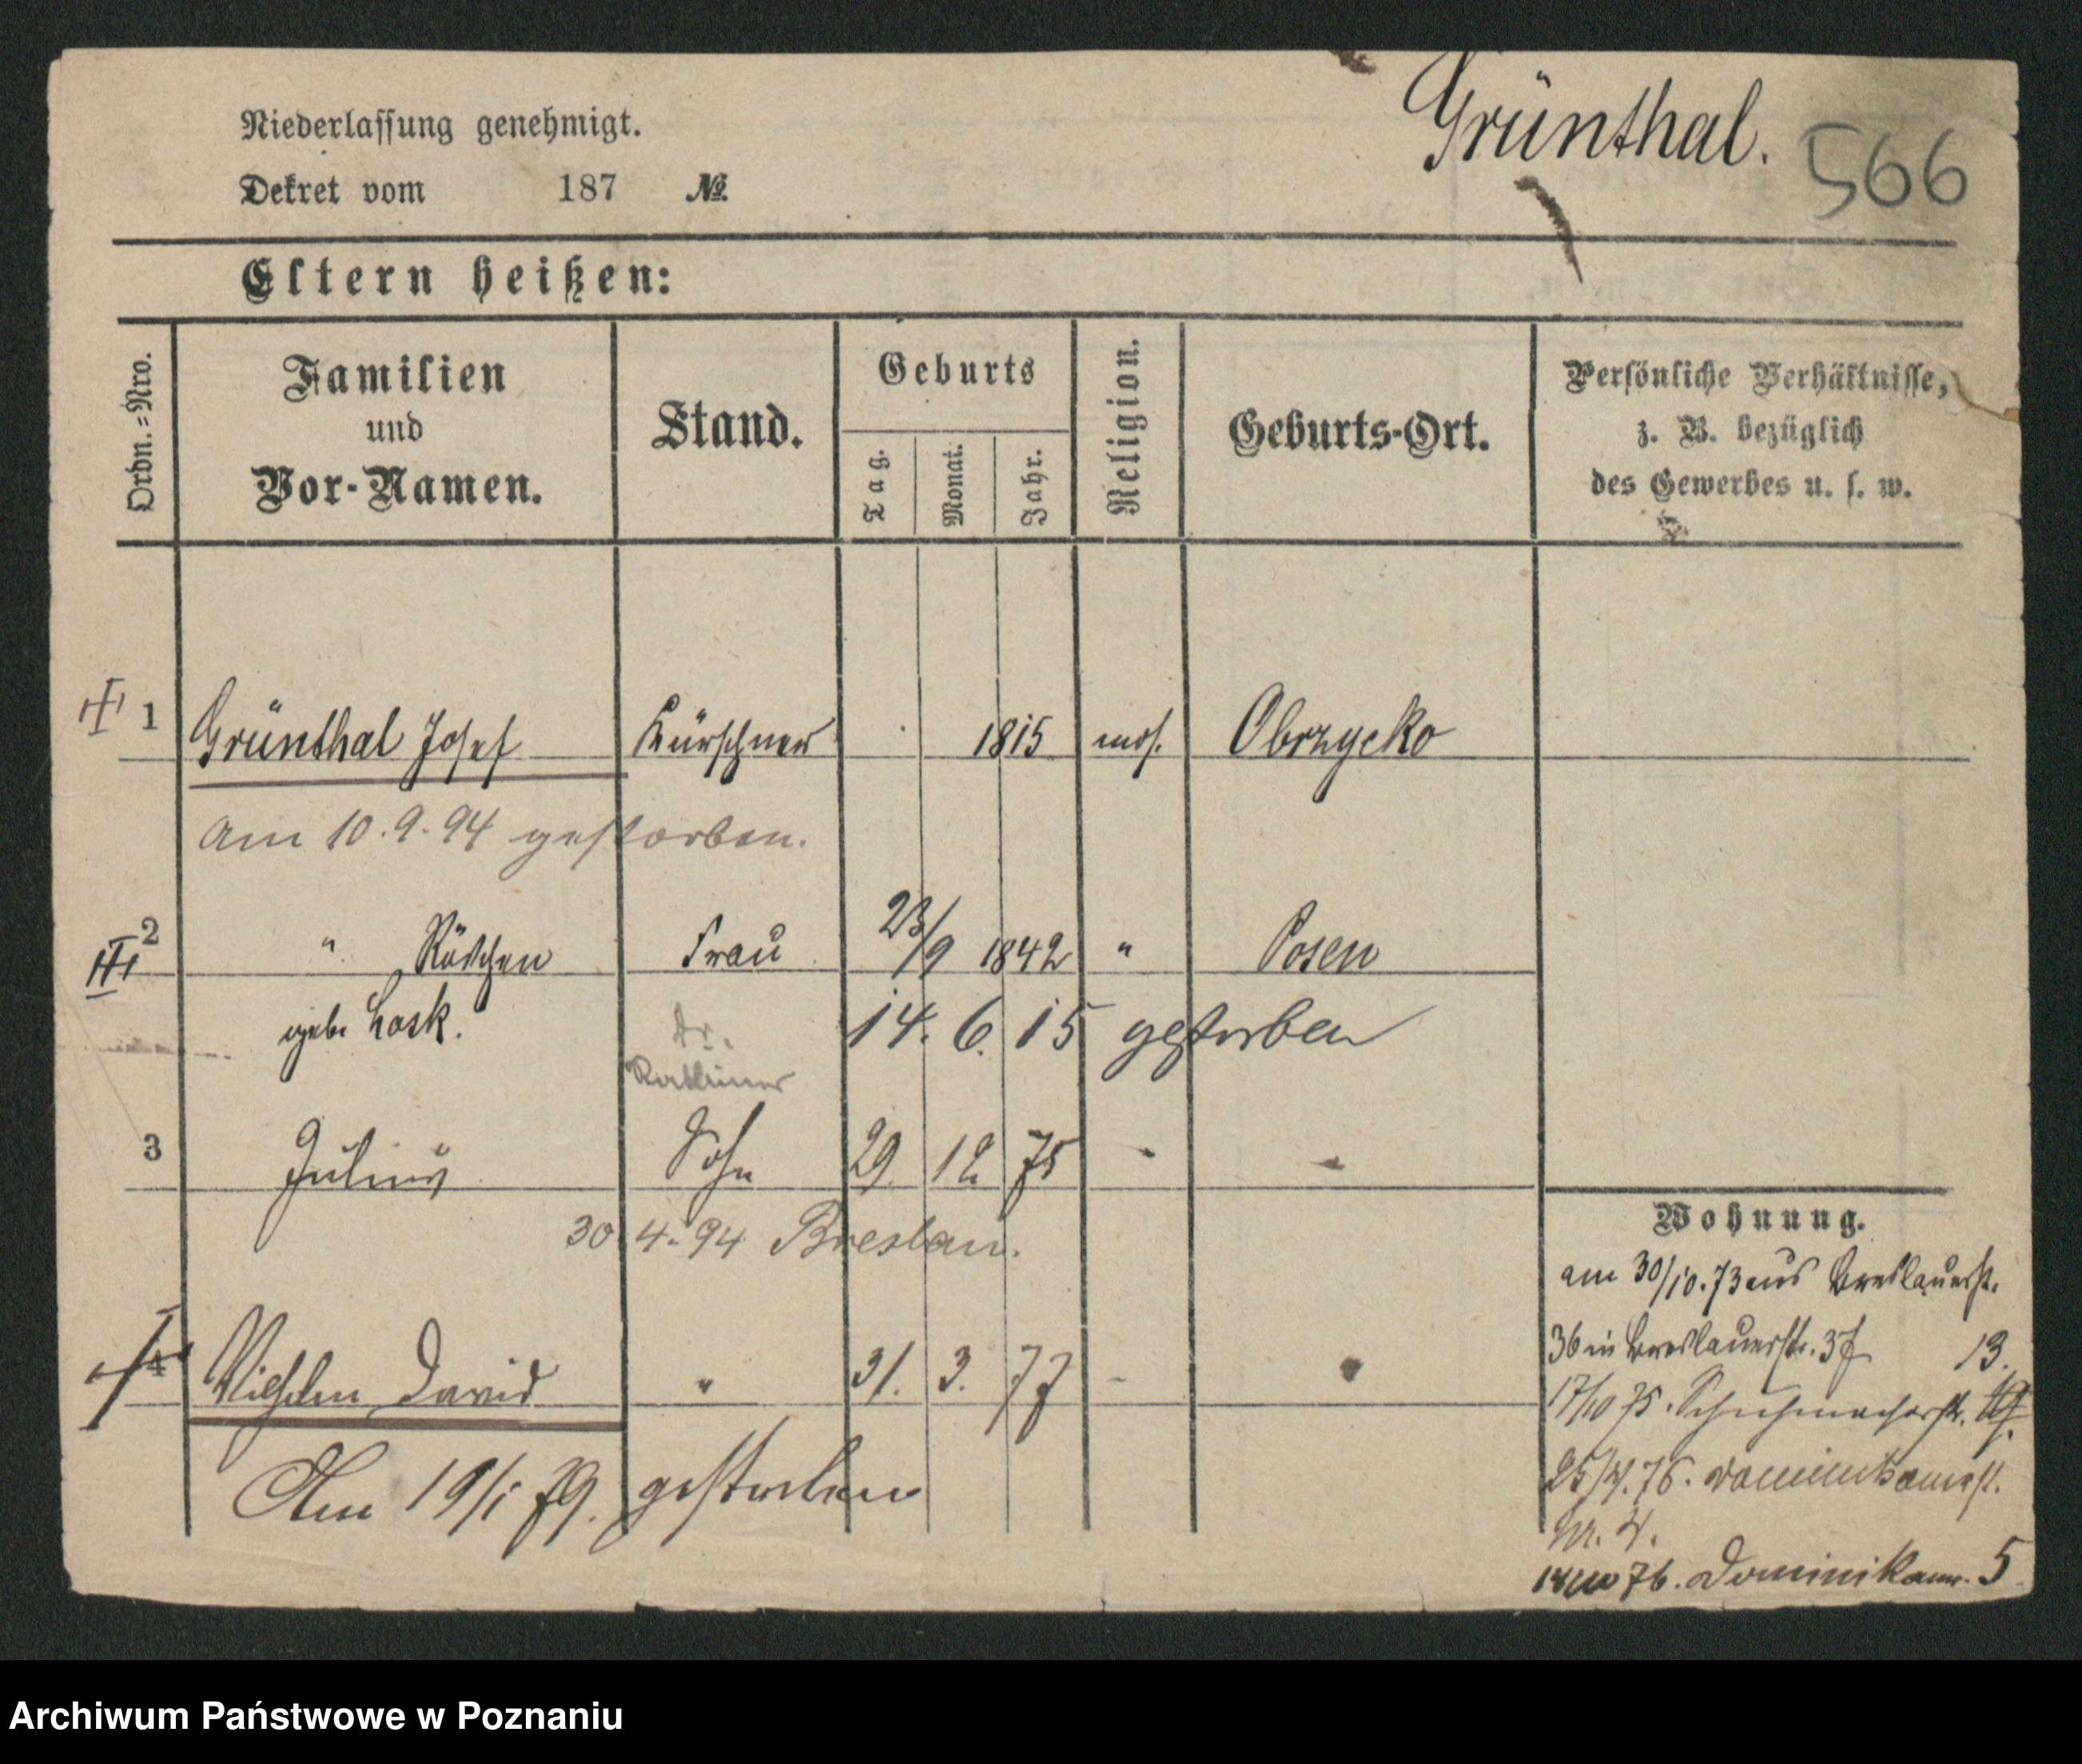 Grünthal.
566
Niederlassung genehmigt.
Dekret vom 187 No.
Eltern heißen:
Ordn.=Nro.
Familien und Vor-Namen.
Stand.
Geburts
Tag.
Monat.
Jahr.
Religion.
Geburts-Ort.
Persönliche Verhältnisse,
z. B. bezüglich
des Gewerbes u. s. w.
1 Grünthal Josef Kürschner 1815 mos. Obrzycko
am 10.9.94 gestorben.
2 " Röschen Frau 23/9 1842 " Posen
geb. Lask. 14. 6. 15 gestorben
Dr.
3 Julius Sohn 29. 12 75 - -
30.4.94 Breslau.
4 Wilhelm David " 31. 3. 77 -
Am 19/1 79. gestorben
Wohnung.
am 30/10.73 aus Breslauerst.
36 in Breslauerstr. 37
13.
17/10 75. Schuhmacherstr. 19.
25/4.76. Dominikanerst.
Nr. 4.
76. Dominikaner. 5
Archiwum Państwowe w Poznaniu